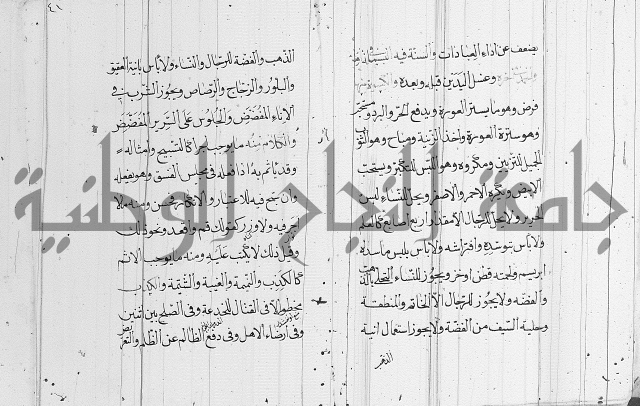 يضعف عن اداء العبادات والسنة فيه البسملة
وغسل اليدين قبله وبعده والكسوة منها
فرض وهو ما يستر العورة ويدفع الحر والبرد ومستحب
وهو سترة العورة واخذ الزينة ومباح وهو الثوب
الجميل للتزين ومكروه وهو اللبس للتكبر ويستحب
الابيض ويكره الاحمر والاصفر ويحل للنساء لبس
الحرير ولا يحل للرجال الا مقدار اربع اصابع كالعلم
ولا باس بتوسده وافتراشه ولا باس بلبس ما سداه
ابريسم ولحمته قطن او خز ويجوز للنساء التحلي بالذهب
والفضة ولا يجوز للرجال الا الخاتم والمنطقة
وحلية السيف من الفضة ولا يجوز استعمال انية
الذهب
٤١
الذهب والفضة للرجال والنساء ولا باس بانية العقيق
والبلور والزجاج والرصاص ويجوز الشرب في
الاناء المفضض والجلوس على السرير المفضض
والكلام منه ما يوجب اجرا كالتسبيح وامثاله
وقد ياثم به اذا فعله في مجلس الفسق وهو يعمله
وان سبح فيه للاعتبار والانكار فحسن ومنه ما لا
اجر فيه ولا وزر كقولك قم واقعد ونحو ذلك
وقيل ذلك لا يكتب عليه ومنه ما يوجب الاثم
كالكذب والنميمة والغيبة والشتيمة والكذب
محظور الا في القتال للخدعة وفي الصلح بين اثنين
وفي ارضاء الاهل وفي دفع الظالم عن الظلم
جامعة النجاح الوطنية